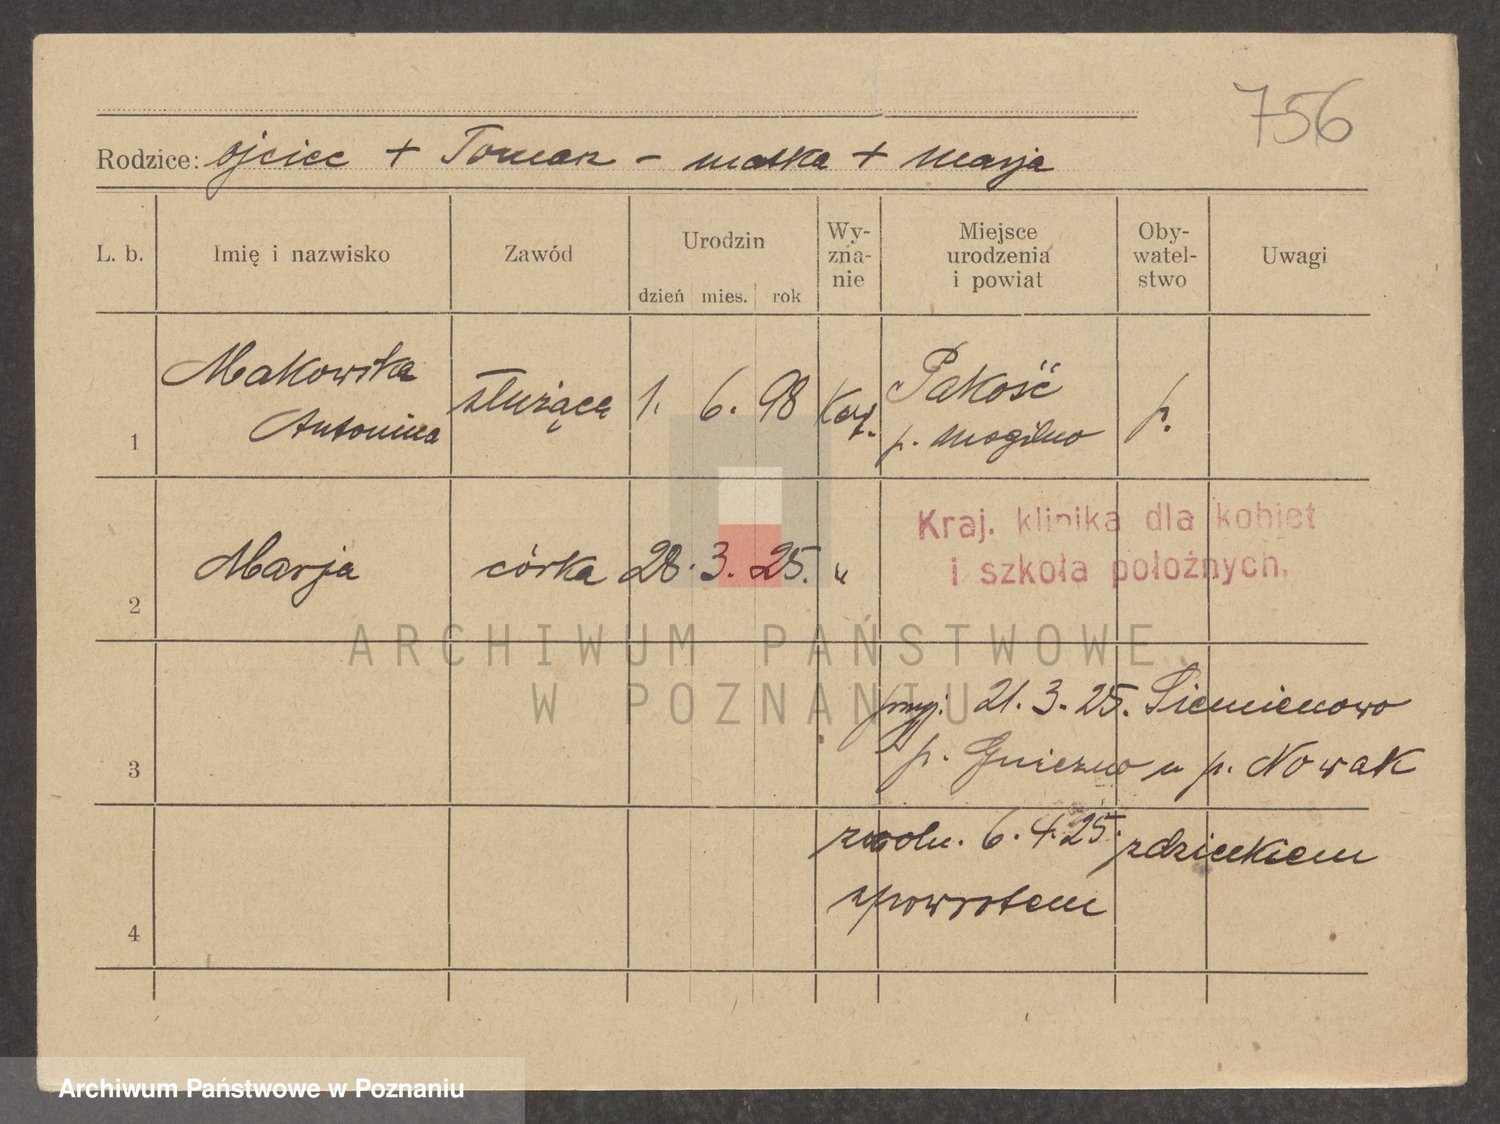 756
Rodzice: ojciec + Toman - matka + Marja
L. b.
Imię i nazwisko
Zawód
Urodzin
dzień mies. rok
Wy-
zna-
nie
Miejsce
urodzenia
i powiat
Oby-
watel-
stwo
Uwagi
1
Makowska
Antonina
służąca
1. 6. 98
Kat.
Pakość
p. Mogilno
p.
2
Marja
córka
28. 3. 25.
"
Kraj. klinika dla kobiet
i szkoła położnych.
ARCHIWUM PAŃSTWOWE
W POZNANIU
3
przyj: 21. 3. 25. Siemienowo
p. Gniezno u p. Nowak
4
zwoln. 6. 4. 25. zdzieckiem
spowrotem
Archiwum Państwowe w Poznaniu